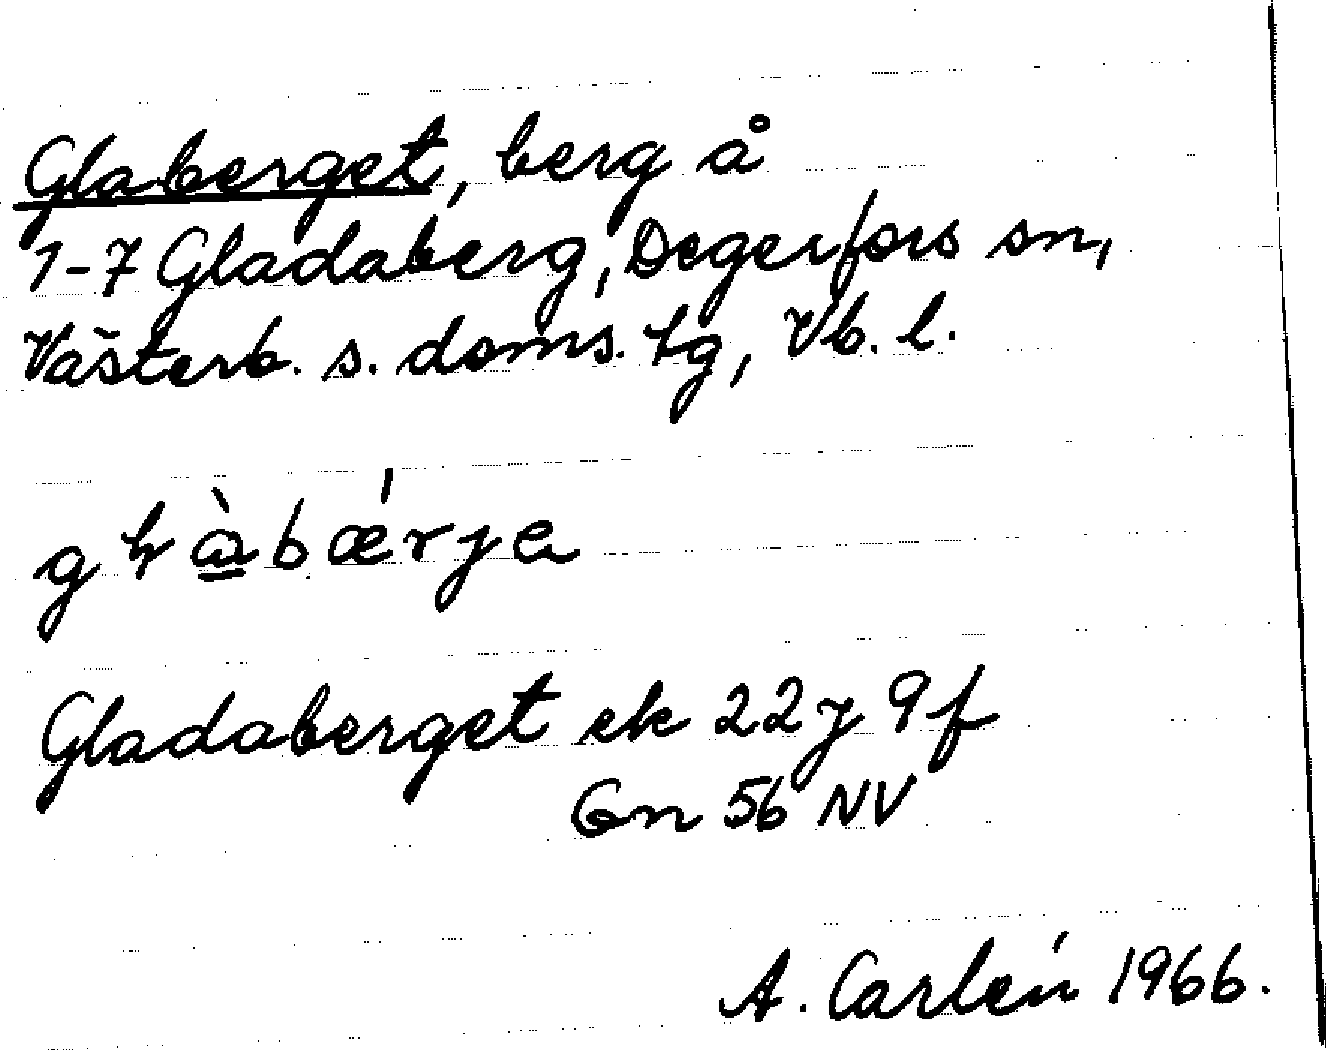 Glaberget, berg å
1-7 Gladaberg, Degerfors sn,
Västerb. s. doms. tg, Vb. l.
Gladaberget ek 22 j 9 f
Gn 56 NV
A. Carlén 1966.